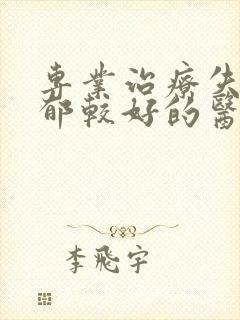 專業治療失
郁較好的醫
李飛宇